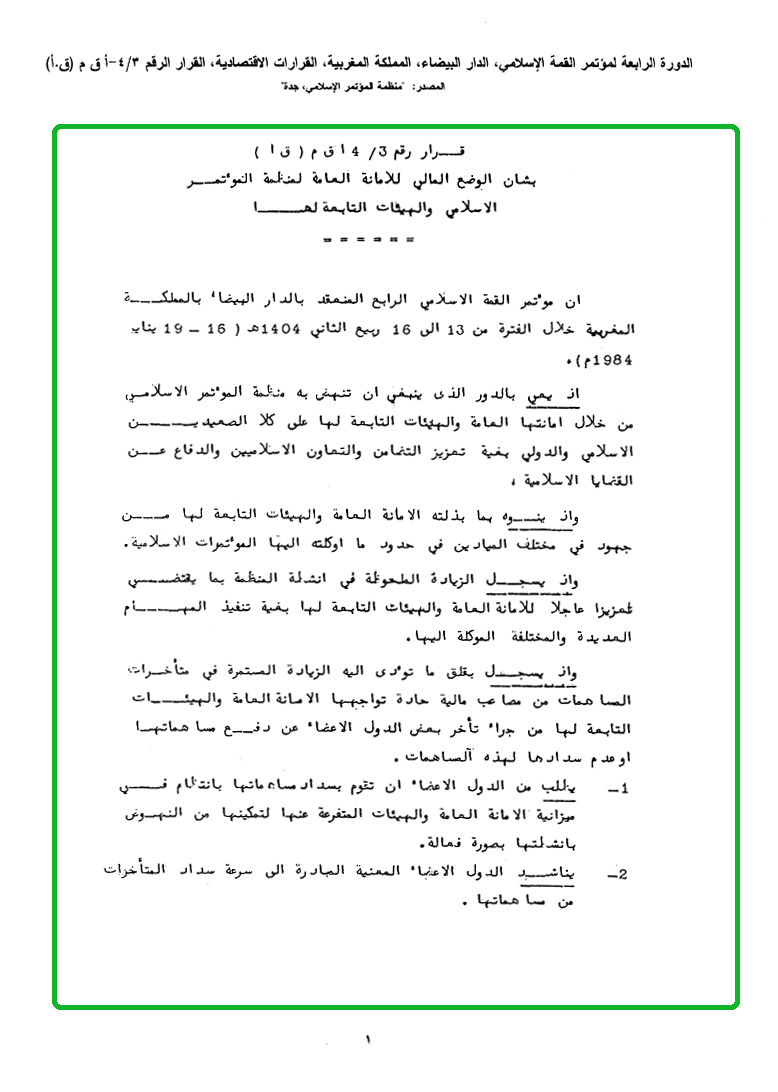 الدورة الرابعة لمؤتمر القمة الإسلامي، الدار البيضاء، المملكة المغربية، القرارات الاقتصادية، القرار الرقم ٤/٣-أ ق م (ق.أ)
المصدر: "منظمة المؤتمر الإسلامي، جدة"
قرار رقم 3/ 4 اق م ( ق ا )
بشان الوضع المالي للامانة العامة لمنظمة الموءتمر
الاسلامي والهيئات التابعة لها
= = = = = =
ان موءتمر القمة الاسلامي الرابع المنعقد بالدار البيضاء بالمملكة
المغربية خلال الفترة من 13 الى 16 ربيع الثاني 1404هـ ( 16 – 19 يناير
1984م).
اذ يعي بالدور الذى ينبغي ان تنهض به منظمة الموءتمر الاسلامي
من خلال امانتها العامة والهيئات التابعة لها على كلا الصعيدين
الاسلامي والدولي بغية تعزيز التضامن والتعاون الاسلاميين والدفاع عن
القضايا الاسلامية ،
واذ ينوه بما بذلته الامانة العامة والهيئات التابعة لها من
جهود في مختلف الميادين في حدود ما اوكلته اليها الموءتمرات الاسلامية.
واذ يسجل الزيادة الملحوظة في انشطة المنظمة بما يقتضي
تعزيزا عاجلا للامانة العامة والهيئات التابعة لها بغية تنفيذ المهام
العديدة والمختلفة الموكلة اليها.
واذ يسجل بقلق ما توءدى اليه الزيادة المستمرة في متأخرات
المساهمات من مصاعب مالية حادة تواجهها الامانة العامة والهيئات
التابعة لها من جراء تأخر بعض الدول الاعضاء عن دفع مساهماتها
اوعدم سدادها لهذه المساهمات .
1– يطلب من الدول الاعضاء ان تقوم بسداد مساهماتها بانتظام في
ميزانية الامانة العامة والهيئات المتفرعة عنها لتمكينها من النهوض
بانشطتها بصورة فعالة.
2– يناشد الدول الاعضاء المعنية المبادرة الى سرعة سداد المتأخرات
من مساهماتها .
١